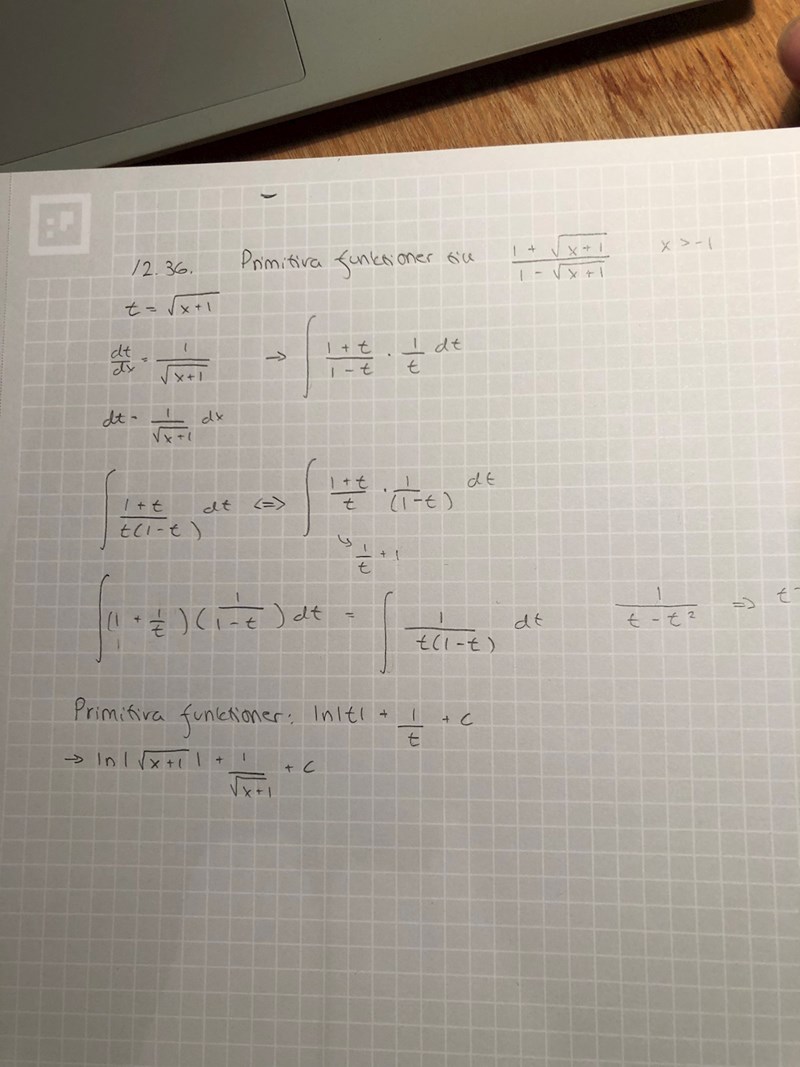 12.36. Primitiva funktioner till (1 + √(x+1))/(1 - √(x+1)) x > -1
t = √(x+1)
dt/dx = 1/√(x+1) → ∫ (1+t)/(1-t) · 1/t dt
dt = 1/√(x+1) dx
∫ (1+t)/(t(1-t)) dt <=> ∫ (1+t)/t · 1/(1-t) dt
↳ 1/t + 1
∫ (1 + 1/t)(1/(1-t)) dt = ∫ 1/(t(1-t)) dt 1/(t - t²) => t-
Primitiva funktioner: ln|t| + 1/t + c
→ ln|√(x+1)| + 1/√(x+1) + c